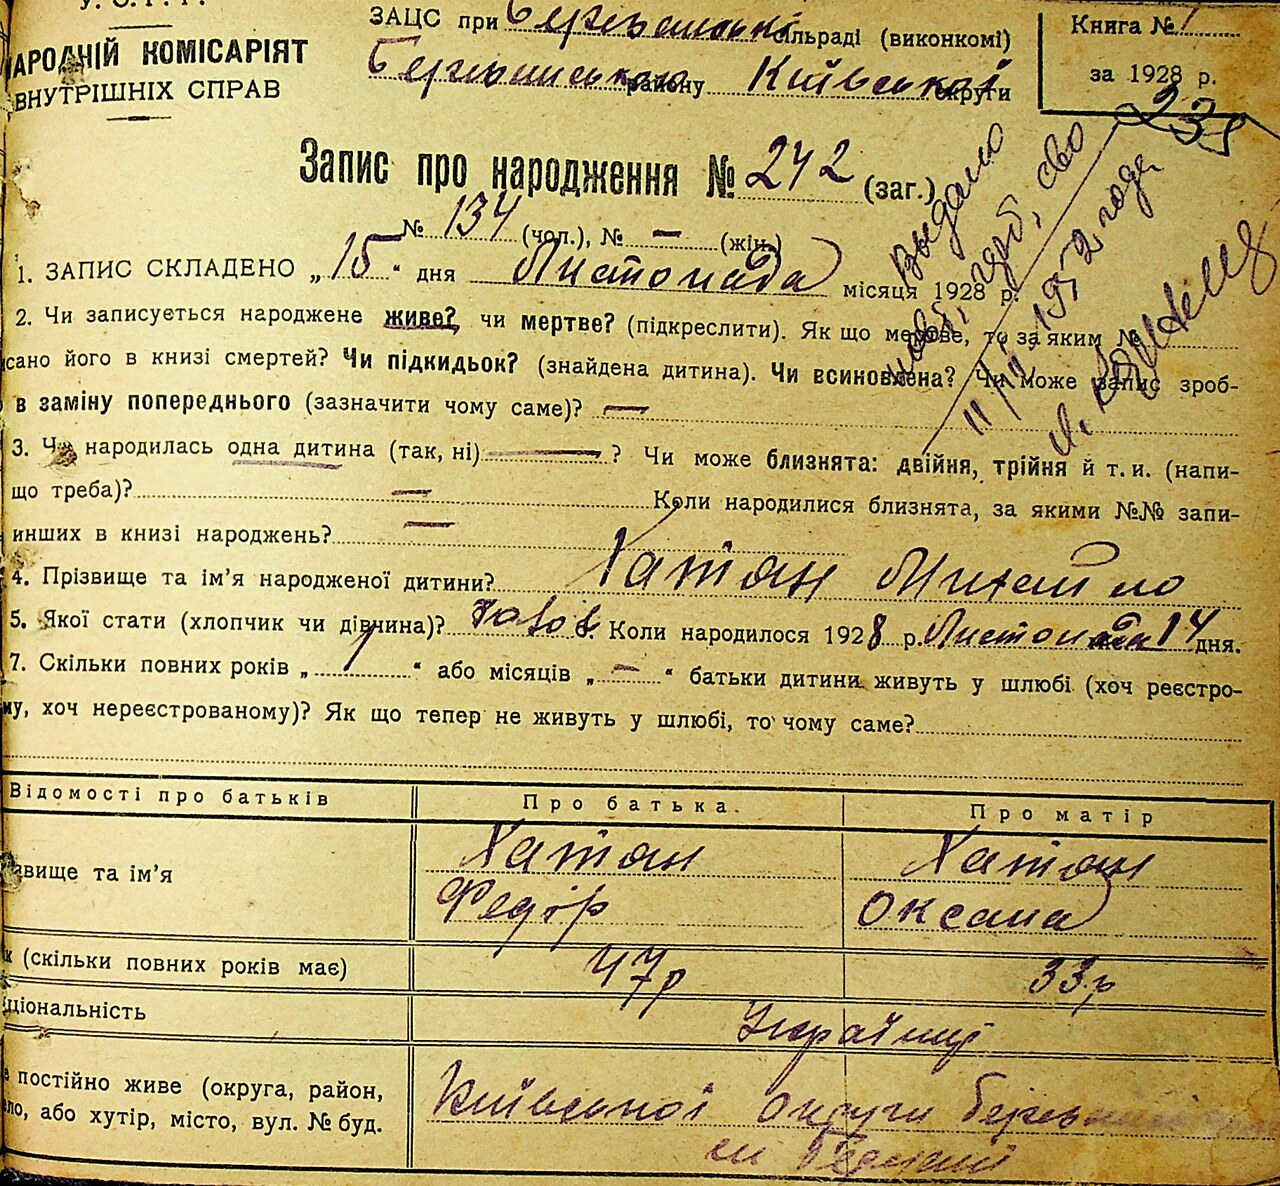 У. С. Р. Р.
НАРОДНІЙ КОМІСАРІЯТ
ВНУТРІШНІХ СПРАВ
ЗАЦС при сільраді (виконкомі)
району Київської округи
Книга № 1
за 1928 р.
238
Запис про народження № 242 (заг.)
№ 134 (чол.), № — (жін.)
Выдано
11/IV 1952 года
1. ЗАПИС СКЛАДЕНО „15“ дня Листопада місяця 1928 р.
2. Чи записується народжене живе? чи мертве? (підкреслити). Як що мертве, то за яким №
исано його в книзі смертей? Чи підкидьок? (знайдена дитина). Чи всиновлена? Чи може запис зроб-
в заміну попереднього (зазначити чому саме)? —
3. Чи народилась одна дитина (так, ні) — ? Чи може близнята: двійня, трійня й т. и. (напи-
що треба)? — Коли народилися близнята, за якими №№ запи-
инших в книзі народжень? —
4. Прізвище та ім’я народженої дитини? Хатян Михайло
5. Якої стати (хлопчик чи дівчина)? 6. Коли народилося 1928 р. Листопада 14 дня.
7. Скільки повних років „7“ або місяців „—“ батьки дитини живуть у шлюбі (хоч реєстро-
му, хоч нереєстрованому)? Як що тепер не живуть у шлюбі, то чому саме?
Відомості про батьків Про батька Про матір
звище та ім’я Хатян Федір Хатян Оксана
к (скільки повних років має) 47 р 33 р
ціональність Українці
е постійно живе (округа, район, Київської округи
ло, або хутір, місто, вул. № буд.